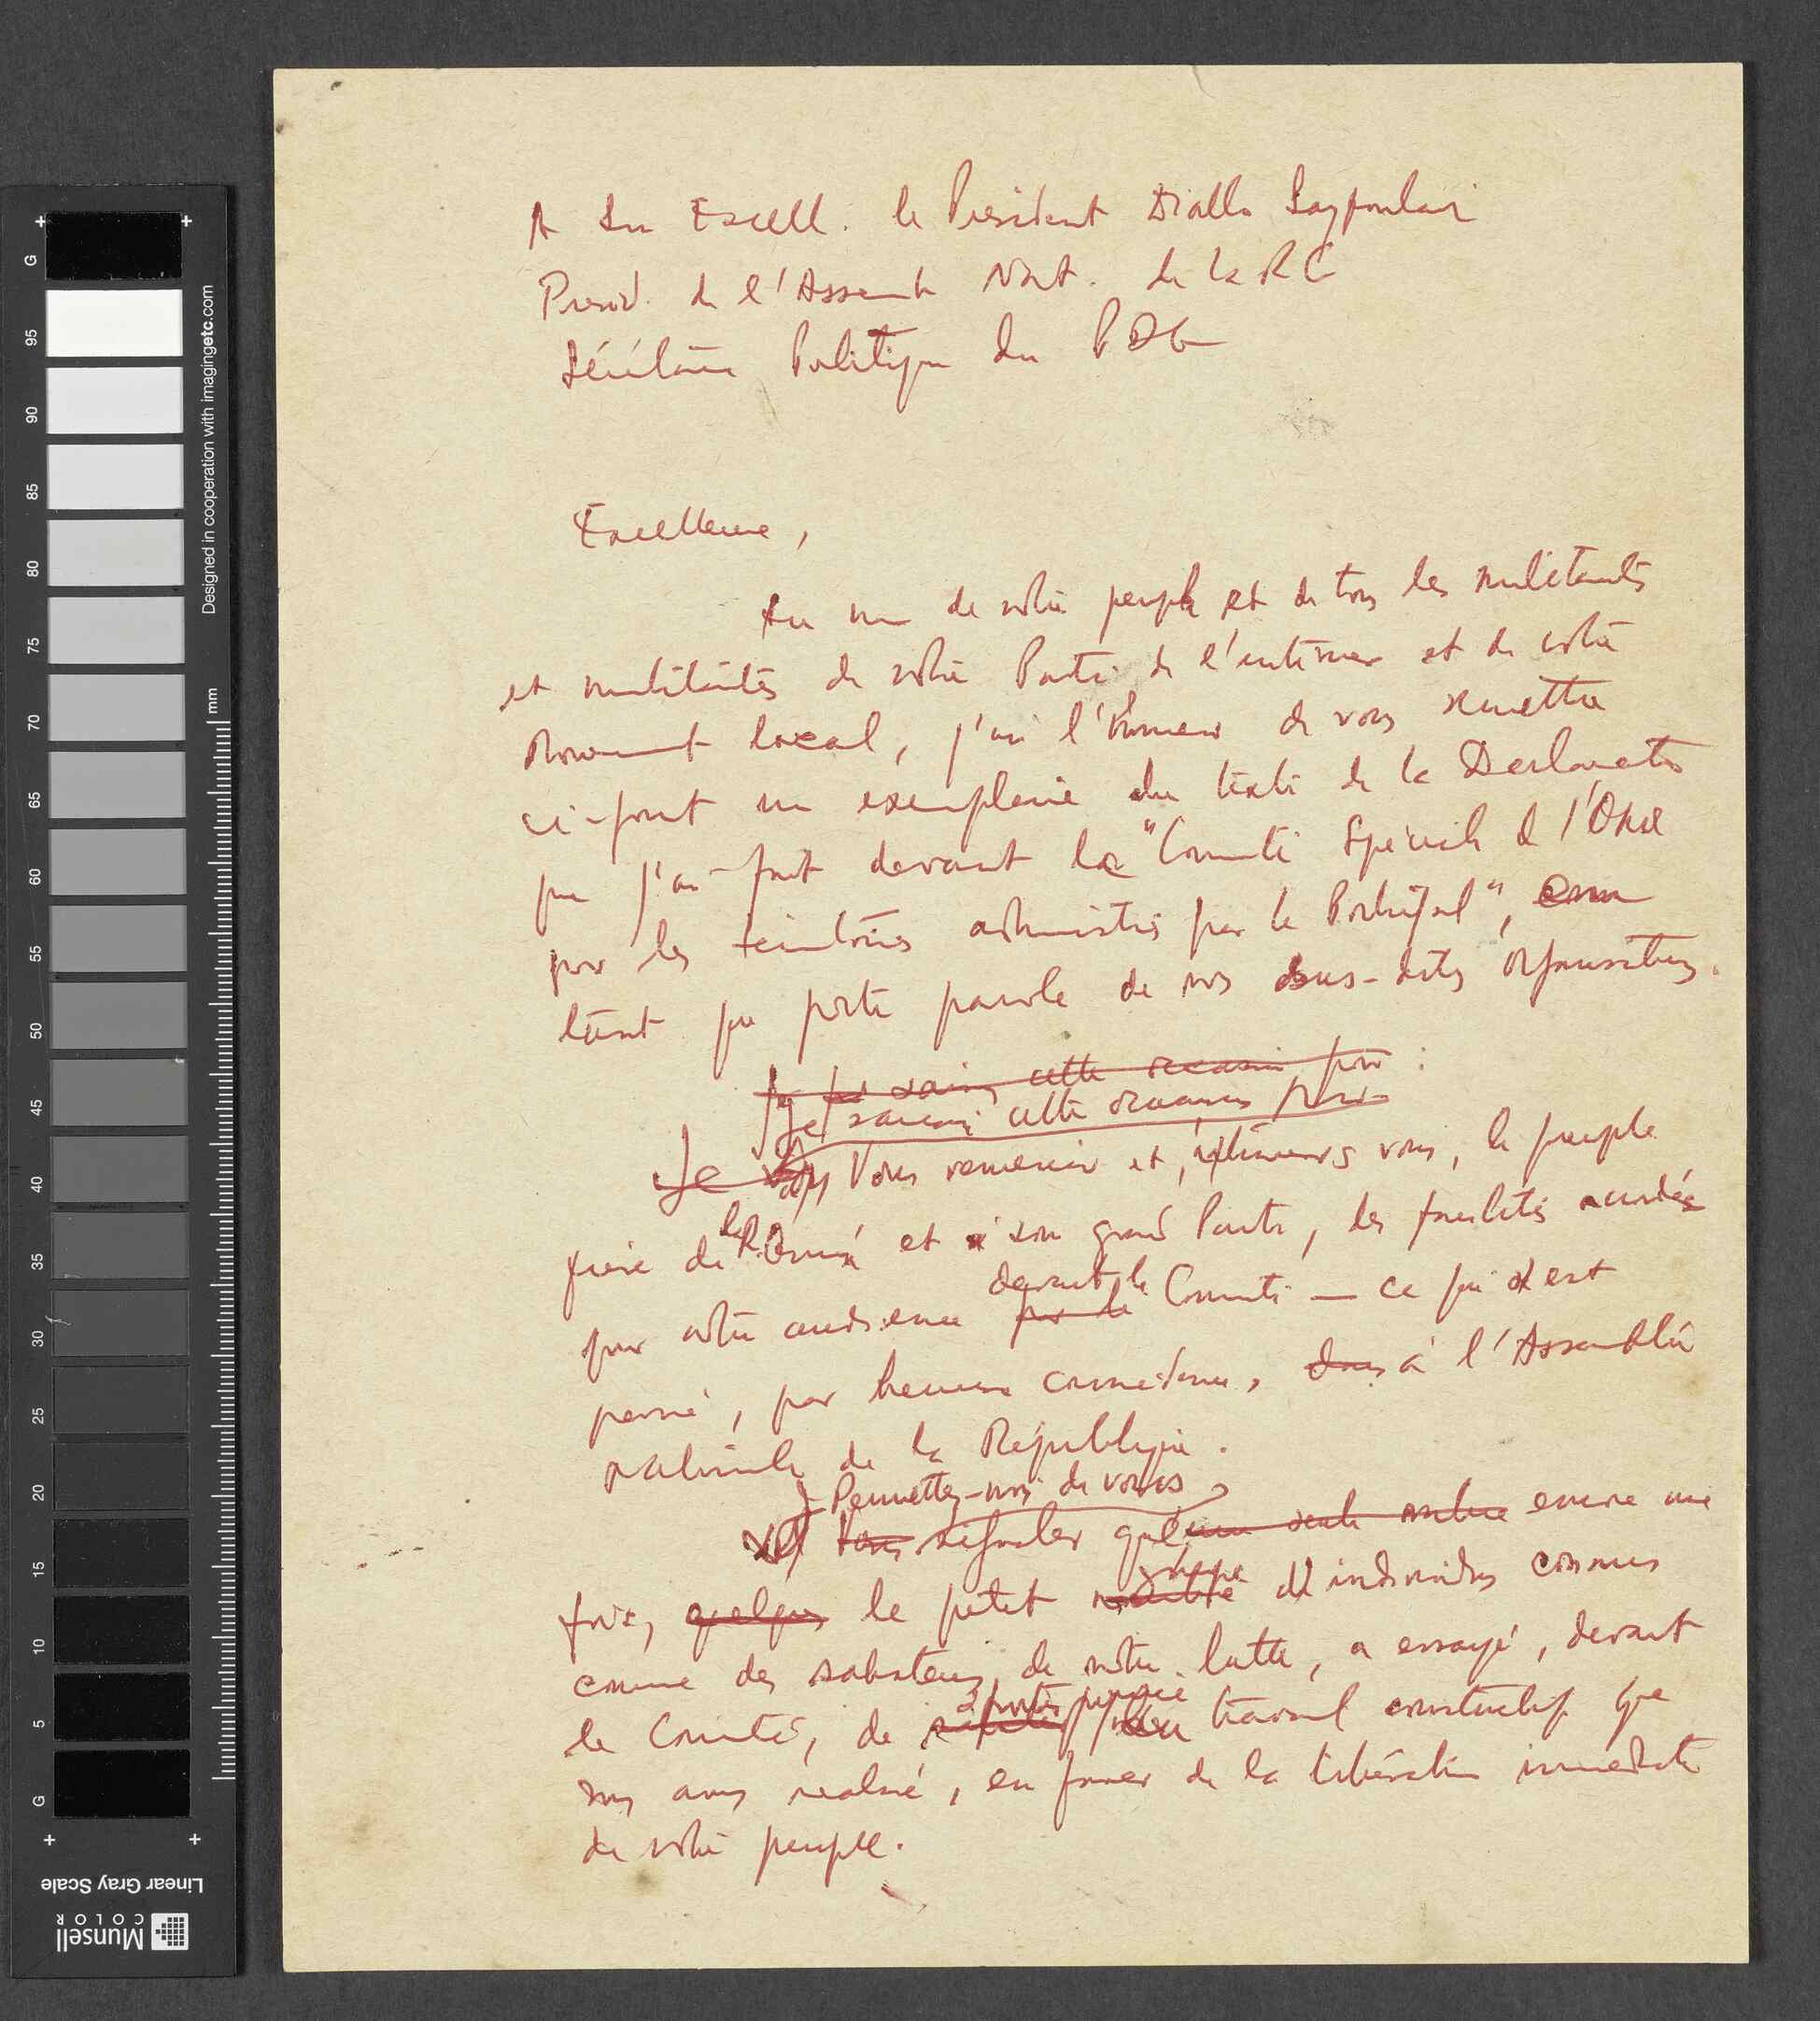 A Son Excell. le Président Diallo Sayfoulaye
Présid. de l'Assemb Nat. de la RG
Secrétaire Politique du PDG
Excellence,
Au nom de notre peuple et de tous les militants
et militantes de notre Parti de l'intérieur et de notre
Mouvement local, j'ai l'honneur de vous remettre
ci-joint un exemplaire du texte de la Déclaration
que j'ai fait devant le "Comité Spécial de l'ONU
pour les territoires administrés par le Portugal", en
tant que porte parole de nos sus-dites organisations.
Je saisis cette occasion pour :
Je saisis cette occasion pour
Je Vous remercier et, à travers vous, le peuple
frère de la R. Guinée et son grand Parti, des facilités accordées
pour notre audience devant le Comité — ce qui s'est
passé, par heureuse coincidence, dans à l'Assemblée
nationale de la République.
Permettez-moi de vous
Vous signaler que encore une
fois, quelques le petit groupe d'individus connus
comme des saboteurs de notre lutte, a essayé, devant
le Comité, de porter préjudice au travail constructif que
nous avons réalisé, en faveur de la libération immédiate
de notre peuple.
Designed in cooperation with imagingetc.com
mm
G
95
90
85
80
75
70
65
60
55
50
45
40
35
30
25
20
15
10
5
G
Linear Gray Scale
Munsell
COLOR